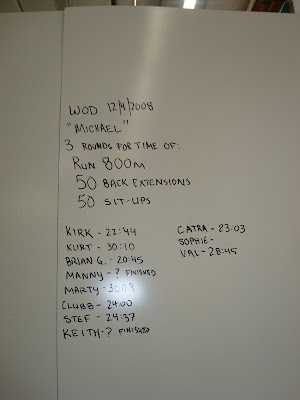 WOD 12/9/2008
"MICHAEL"
3 ROUNDS FOR TIME OF:
RUN 800M
50 BACK EXTENSIONS
50 SIT-UPS
KIRK - 22:44
KURT - 30:10
BRIAN G. - 20:45
MANNY - ? FINISHED
MARTY -
CLUBB - 24:00
STEF - 24:37
KEITH - ? FINISHED
CATRA - 23:03
SOPHIE -
VAL - 28:45